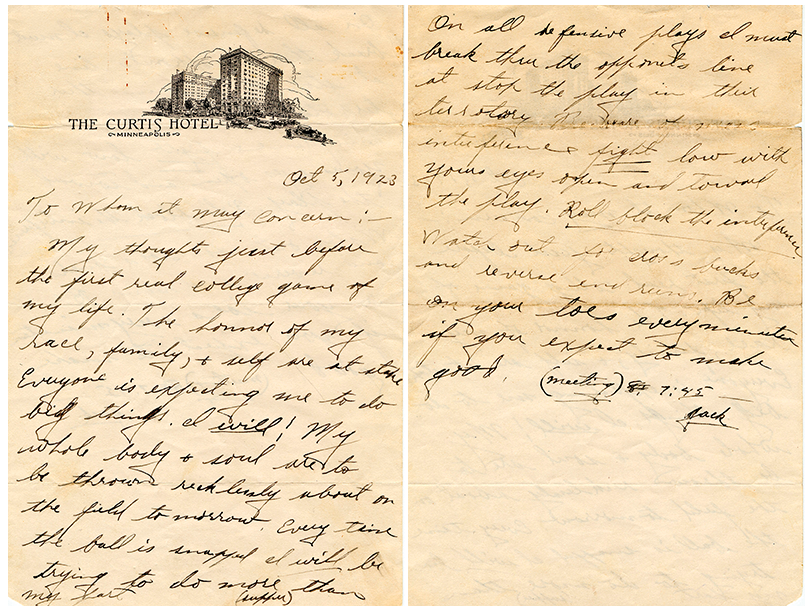 THE CURTIS HOTEL
MINNEAPOLIS
Oct 5, 1923
To Whom it may concern:-
My thoughts just before
the first real college game of
my life. The honnor of my
race, family, & self are at stake
Everyone is expecting me to do
big things. I will! My
whole body & soul are to
be thrown recklessly about on
the field tomorrow. Every time
the ball is snapped I will be
trying to do more than
my part (supper)
On all defensive plays I must
break thru the opponets line
at stop the play in their
terrotory. Beware of mass
interferance fight low with
yours eyes open and toward
the play. Roll block the interference
Watch out for cross bucks
and reverse end runs. Be
on your toes every minute
if you expect to make
good. (meeting) 7:45
Jack